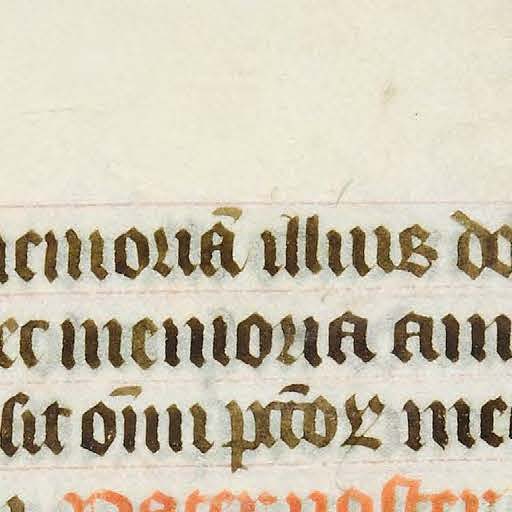 memoriā illius do
ec memoria am
sit om̄i pctō⁊ me
Pater noster